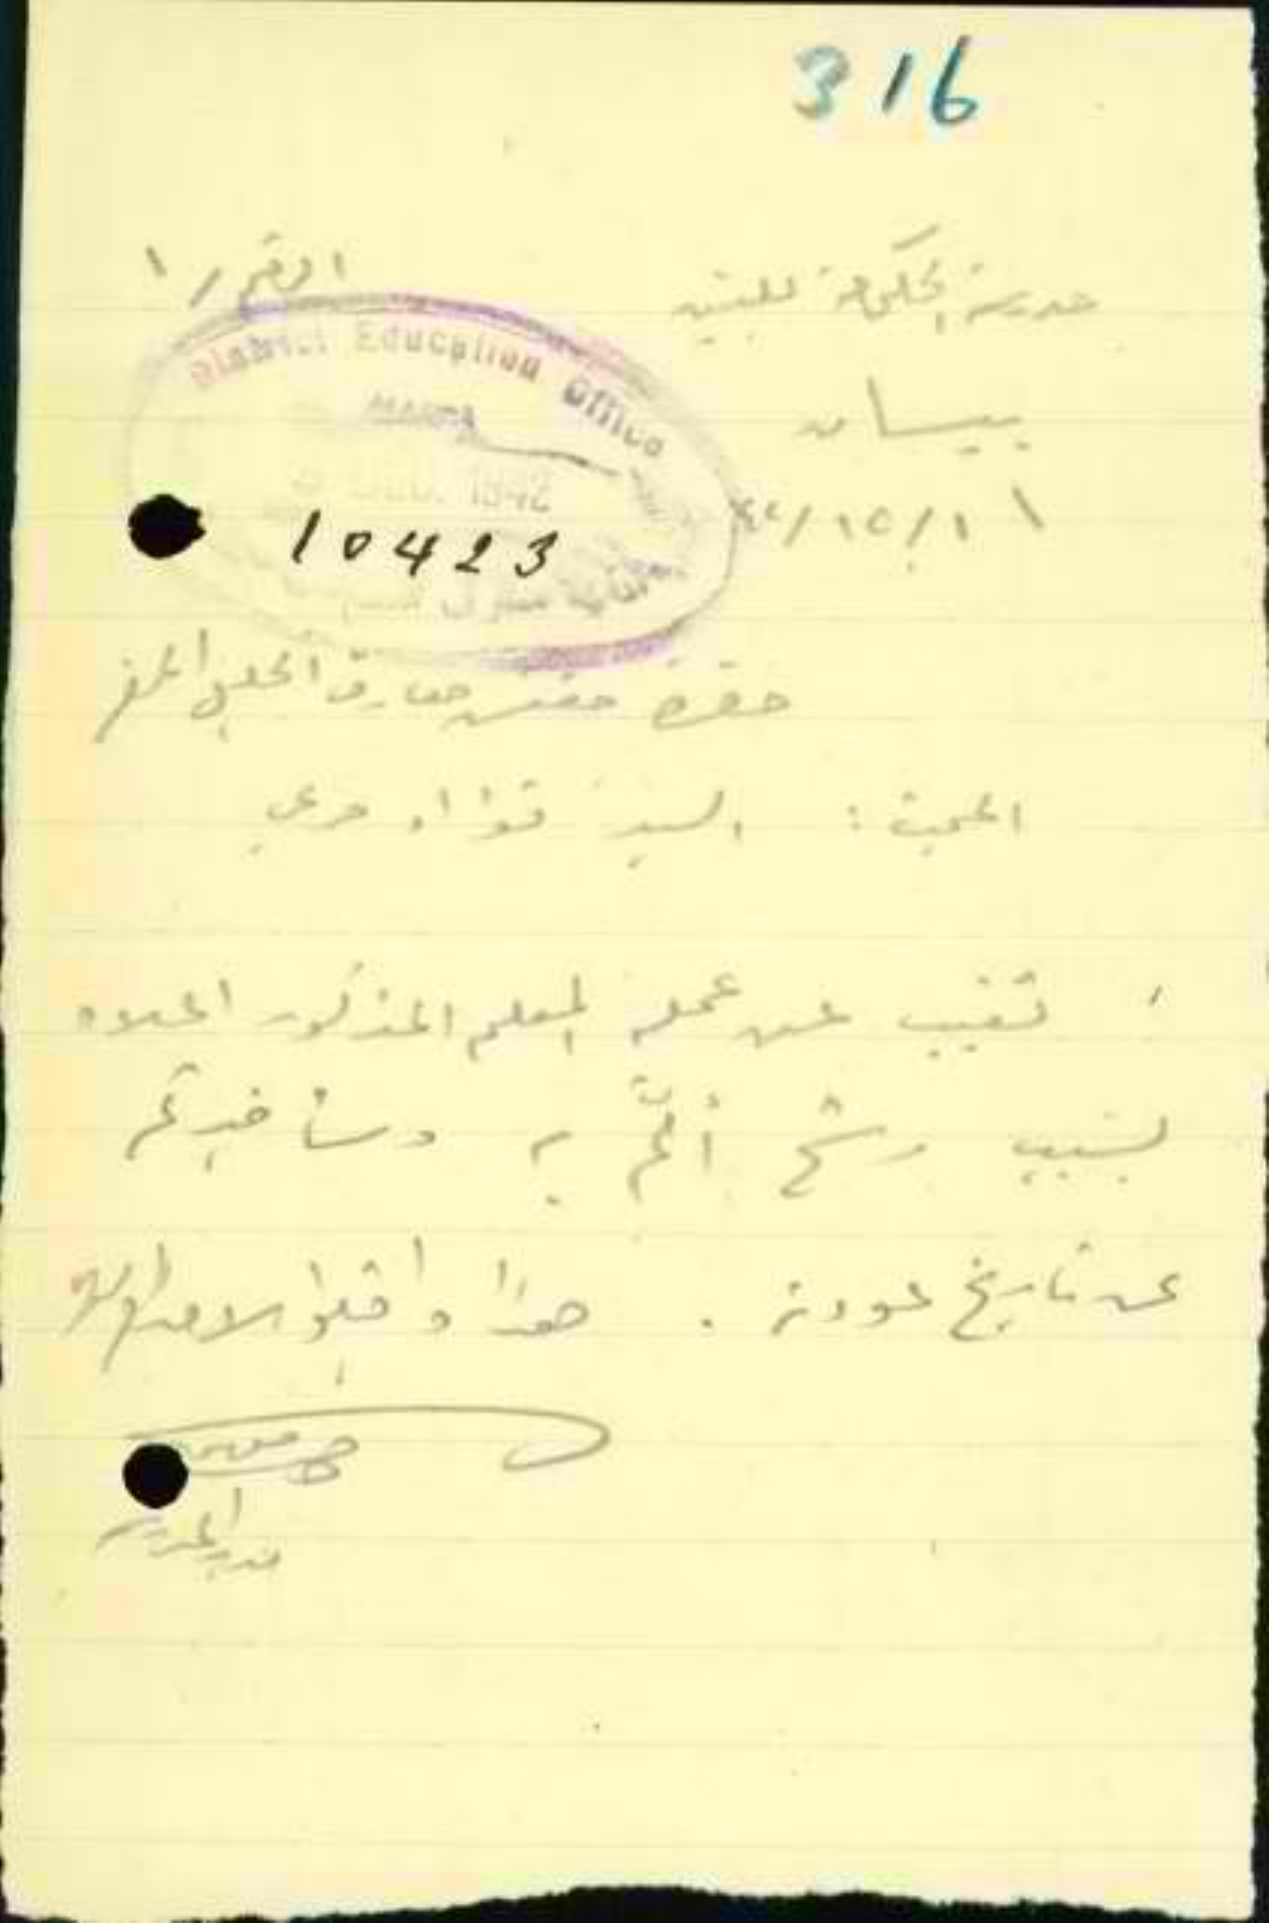 316
مدرسة الحكومة للبنين
الرقم / ١
بيسان
District Education Office
DEC. 1942
10423
حضرة مفتش معارف الجليل المحترم
المبحث : السيد فؤاد مرعي
تغيب عن عمله المعلم المذكور اعلاه
بسبب رشح ألمّ به وسأخبركم
عن تاريخ عودته . هذا واقبلوا الاحترام
مدير المدرسة